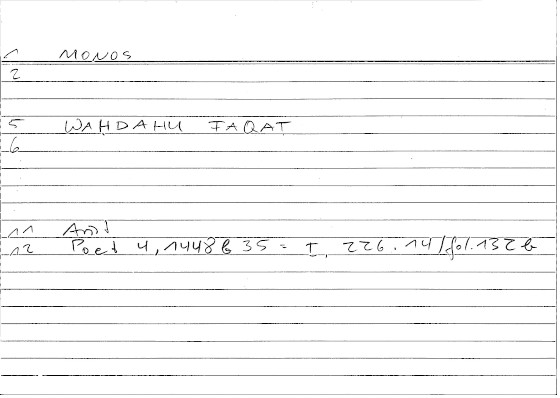 1 MONOS
2
5 WAHDAHU FAQAT
6
11 Arist
12 Poet 4,1448b35 = I, 226.14/fol.132b